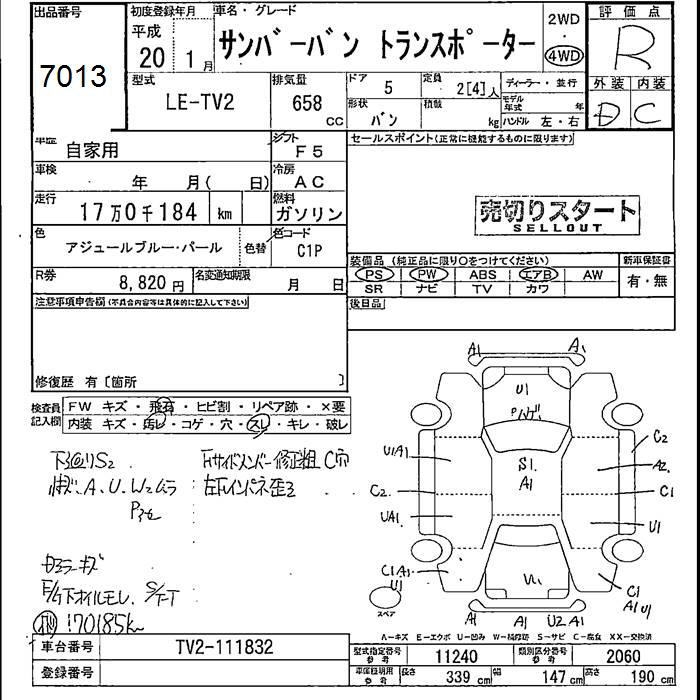 出品番号
7013
初度登録年月
平成
20 年 1 月
車名・グレード
サンバーバン トランスポーター
2WD
・
4WD
評価点
R
型式
LE-TV2
排気量
658 cc
ドア 5
定員 2[4]人
形状 バン
積載 kg
ディーラー・並行
モデル年式 年
ハンドル 左・右
外装 内装
D C
車歴 自家用
シフト F5
車検 年 月( 日)
冷房 AC
走行 17万0千184 km
燃料 ガソリン
色 アジュールブルー・パール
色替
色コード C1P
R券 8,820 円
名変通知期限 月 日
セールスポイント(正常に機能するものに限ります)
売切りスタート
SELLOUT
装備品 (純正品に限り○をつけてください)
PS PW ABS エアB AW
SR ナビ TV カワ
新車保証書
有・無
後日品
注意事項申告欄(不具合内容等は具体的に記入して下さい)
修復歴 有〔箇所 〕
検査員記入欄
FW キズ・飛石・ヒビ割・リペア跡・×要
内装 キズ・汚レ・コゲ・穴・スレ・キレ・破レ
下廻りS2
A、U、W2ムラ
Fサイドメンバー修正粗 C穴
左Fインパネ歪ミ
カラーキズ
F/下オイルモレ
170185km
A1 A1
U1
S1
A1
U1A1
C2
UA1
C1A1
U1
C2
A2
C1
U1
C1
A1U1
A1 A1 U2 A1
スペア
A-キズ E-エクボ U-凹み W-補修跡 S-サビ C-腐食 XX-交換済
車台番号 TV2-111832
登録番号
型式指定番号 参考 11240
類別区分番号 参考 2060
車庫証明用 参考 長さ 339 cm 幅 147 cm 高さ 190 cm